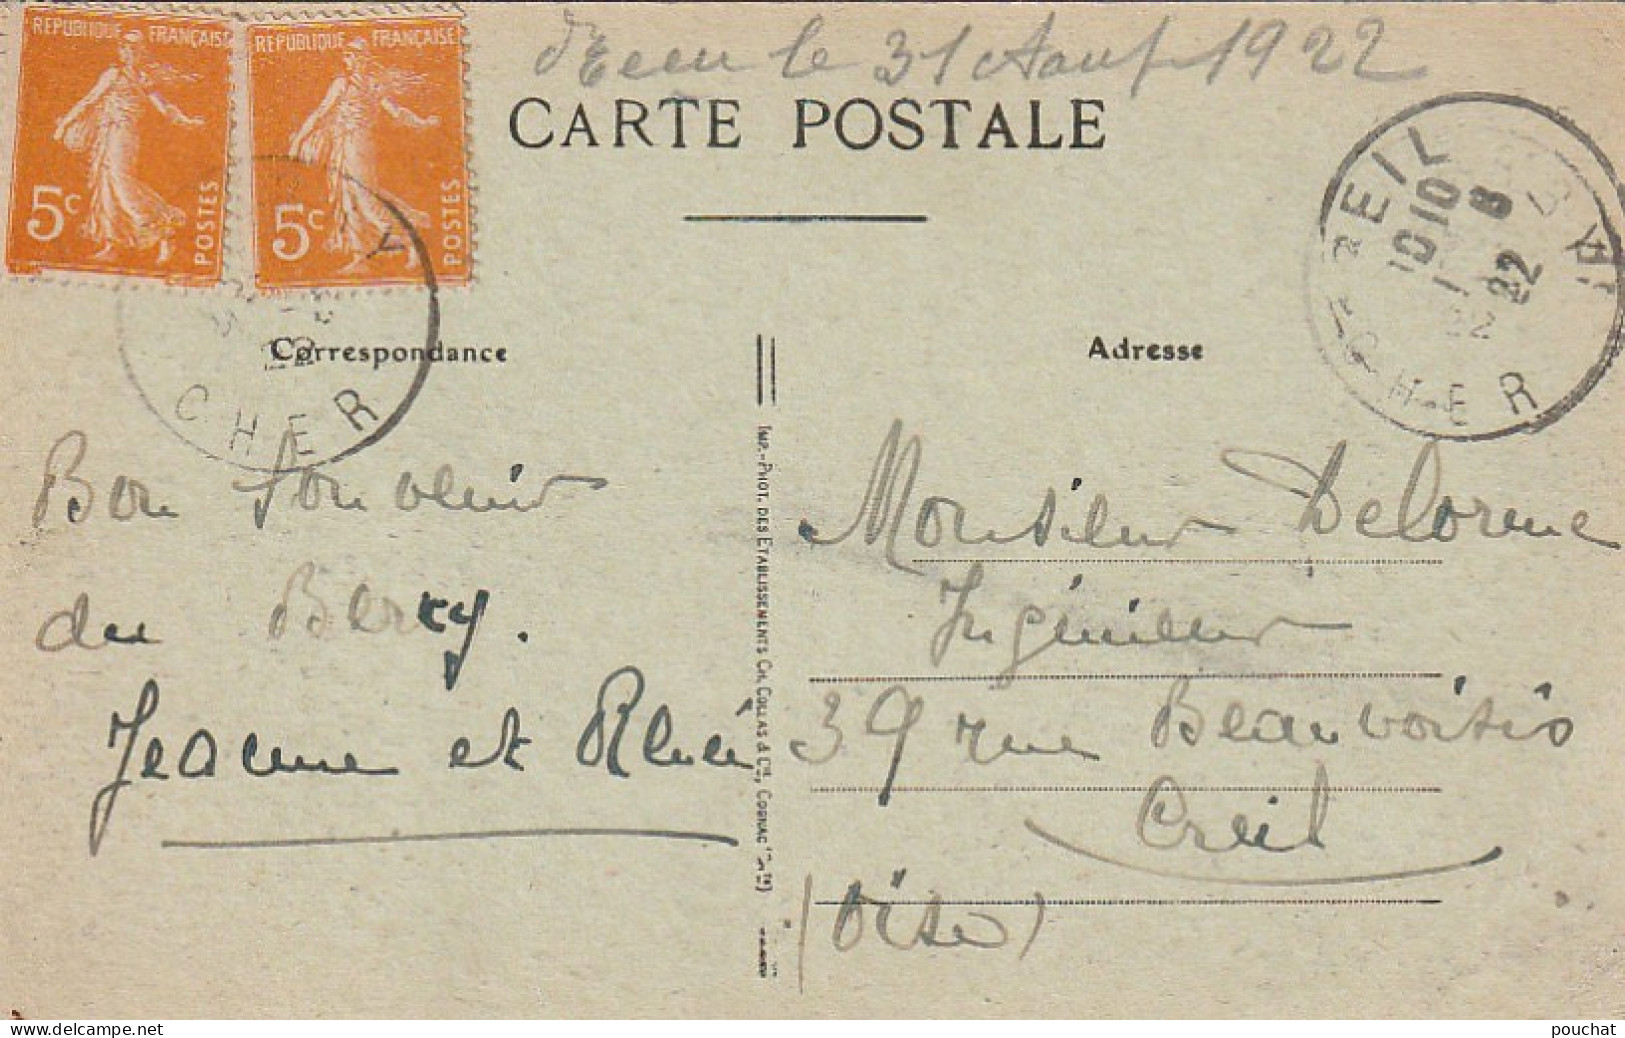 REPUBLIQUE FRANÇAISE
5c
POSTES
REPUBLIQUE FRANÇAISE
5c
POSTES
le 31 Aout 1922
CARTE POSTALE
CHER
22
CHER
10 10
8
22
Correspondance
Adresse
Bon Souvenir
du Berry.
Jeanne et René
IMP.-PHOT. DES ETABLISSEMENTS CH. COLLAS & Cie, COGNAC
Monsieur Delorme
Ingénieur
39 rue Beauvoisis
Creil
(Oise)
www.delcampe.net
pouchat